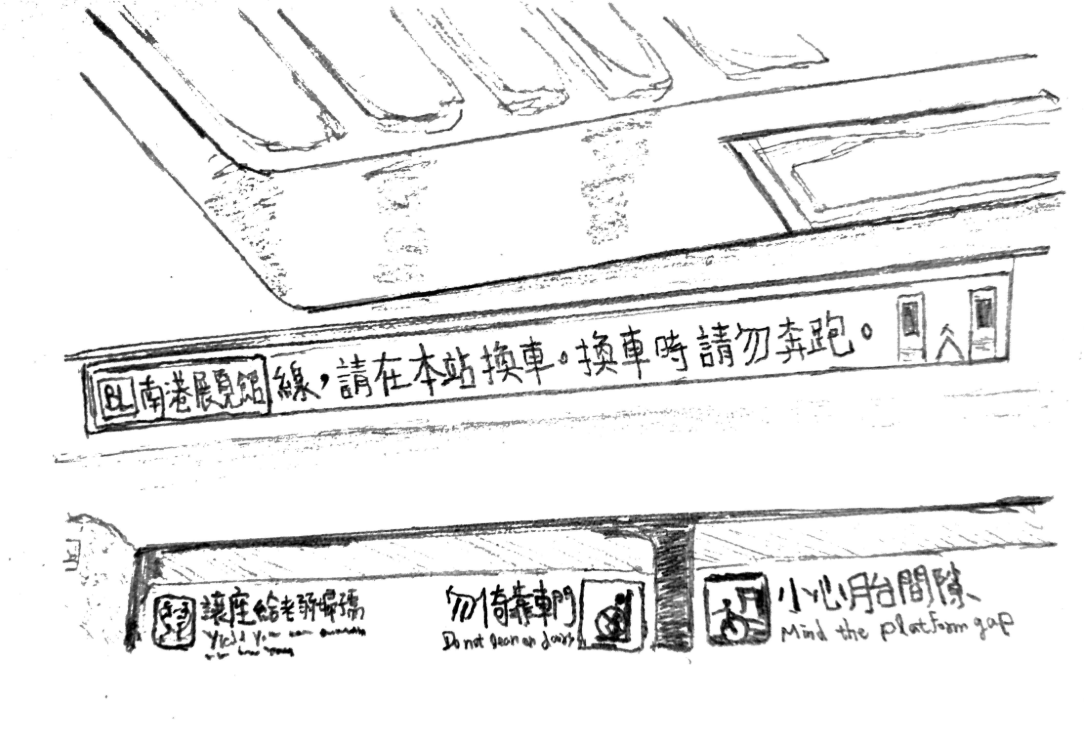 BL 南港展見館 線，請在本站換車。換車時請勿奔跑。
讓座給老弱婦孺
Yield your
勿倚靠車門
Do not lean on doors
小心月台間隙
Mind the platform gap